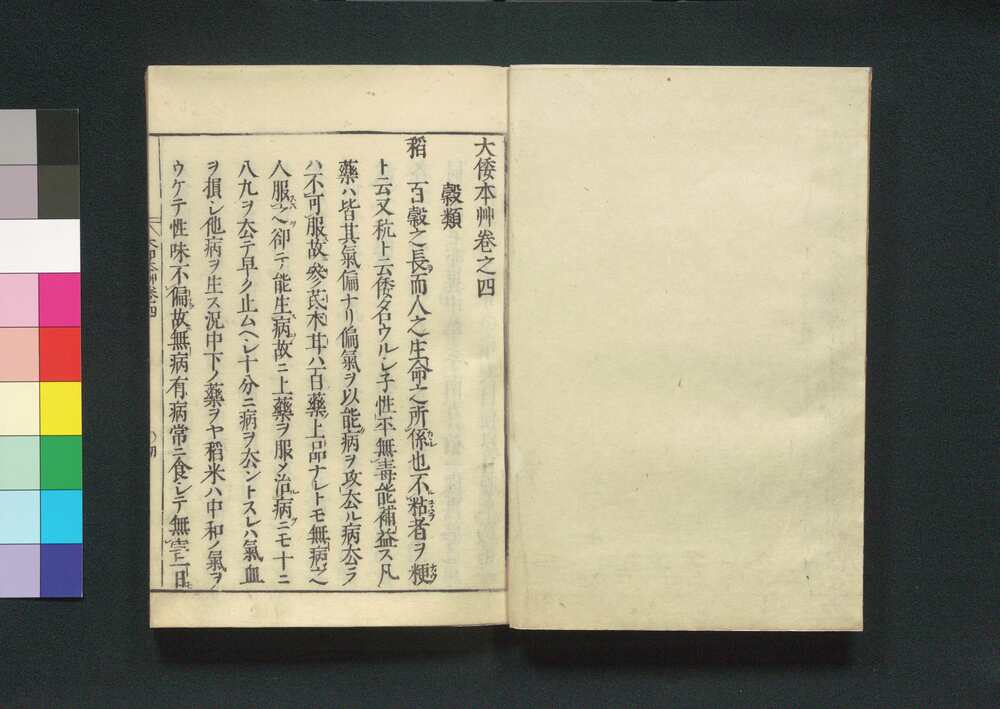 大倭本艸卷之四
穀類
稻 百穀之長而人之生命之所係也不粘者ヲ粳
ト云又秔ト云倭名ウルシ子性平無毒能補益ス凡
藥ハ皆其氣偏ナリ偏氣ヲ以能病ヲ攻厺ル病厺ラ
ハ不可服故參芪朮耳ハ百藥ノ上品ナレトモ無病之
人服之卻テ能生病故ニ上藥ヲ服メ治病ニモ十ニ
八九ヲ厺テ早ク止ムヘシ十分ニ病ヲ厺ントスレハ氣血
ヲ損シ他病ヲ生ス況中下ノ藥ヲヤ稻米ハ中和ノ氣ヲ
ウケテ性味不偏故無病有病常ニ食シテ無害一日